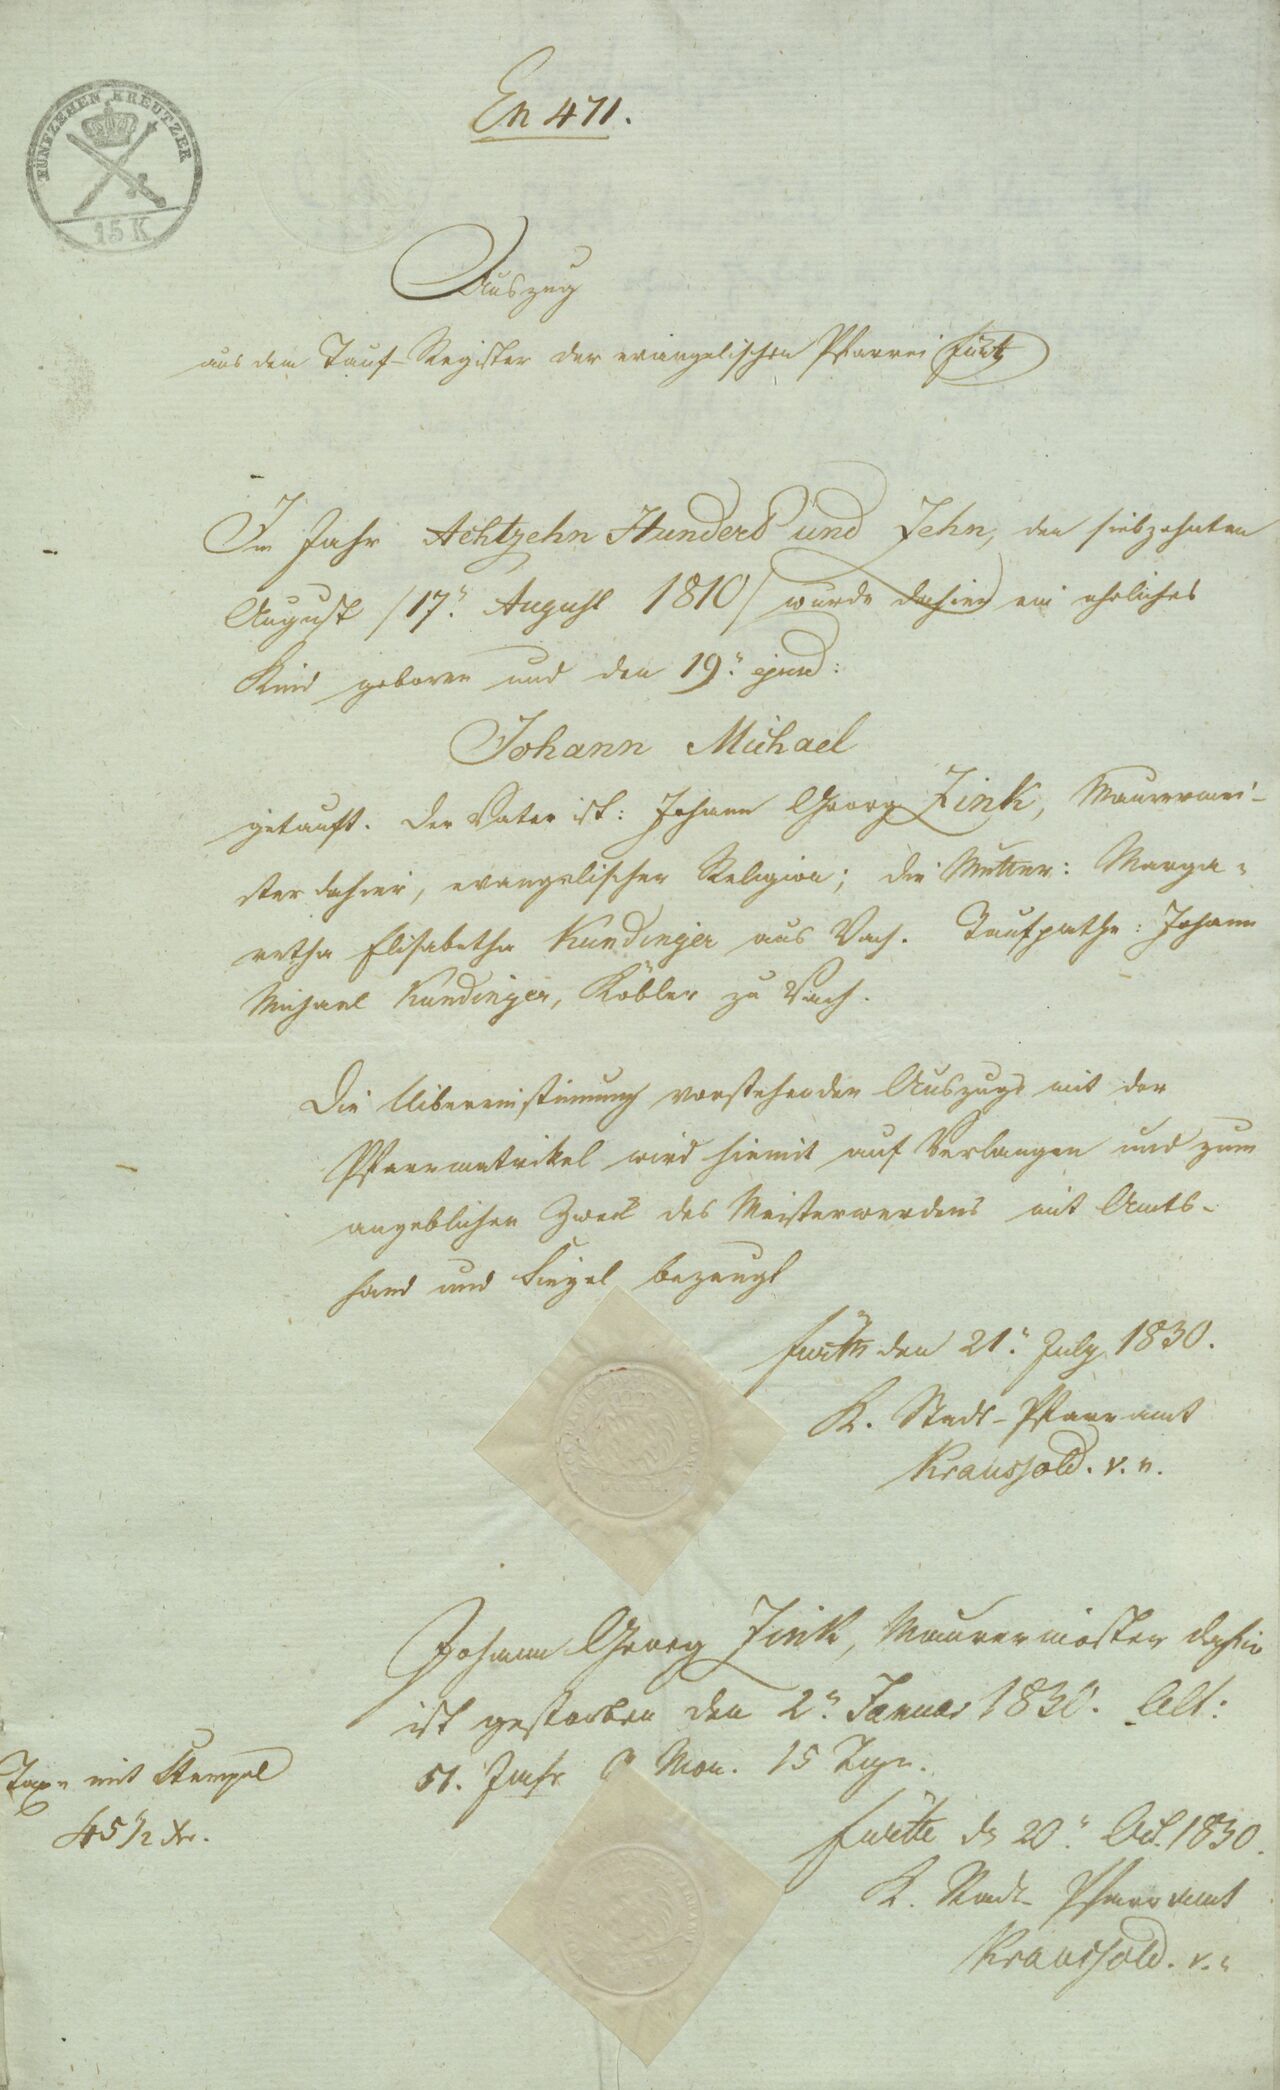 En 471.
FÜNFZEHEN KREUTZER
15 K
Auszug
aus dem Tauf-Register der evangelischen Pfarrei Fürth
Im Jahr Achtzehn Hundert und Zehn, den siebzehnten
August /17n. August 1810/ wurde dahier ein ehrliches
Kind geboren und den 19n. ejusd:
Johann Michael
getauft. Der Vater ist: Johann Georg Zink, Maurermei-
ster dahier, evangelischer Religion; die Mutter: Marga-
retha Elisabetha Kundinger aus Vach. Taufpathe: Johann
Michael Kundinger, Köbler zu Vach.
Die Uibereinstimung vorstehenden Auszugs mit der
Pfarrmatrikel wird hiemit auf Verlangen und zum
angeblichen Zweck des Meisterwerdens mit Amts-
hand und Siegel bezeugt
Fürth den 21n. July 1830.
K. Stadt-Pfarramt
Kraussold. v. n.
Johann Georg Zink, Maurermeister dahier
ist gestorben den 2n. Januar 1830. Alt:
51. Jahr Mon. 15 Tage.
Taxe mit Stempel
45 1/2 Xr.
Fürth d 20n. Oct. 1830.
K. Stadt-Pfarramt
Kraussold. v.